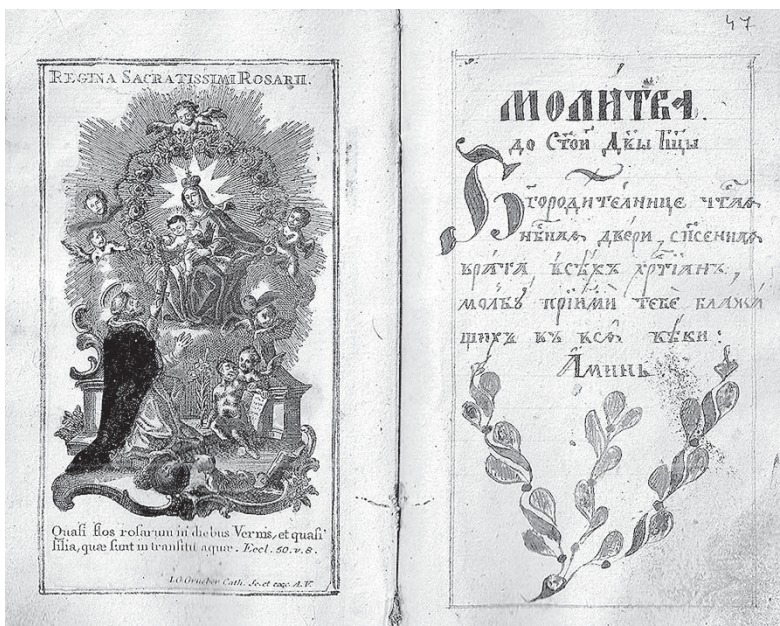 REGINA SACRATISSIMI ROSARII.
Quasi flos rosarum in diebus Vernis, et quasi
lilia, quæ sunt in transitu aquæ. Eccl. 50. v. 8.
Cath. Sc. et exc. A.V.
47
МОЛИ́ТВА.
до Ст҃ои Дв҃ы
Бг҃ородителнице чт҃аѧ
нб҃наѧ двери, сп҃сеннаѧ
врата всѣхъ хрт҃іанъ,
молбꙋ прїими тебе блажа
щихъ въ всѧ вѣки:
Аминь